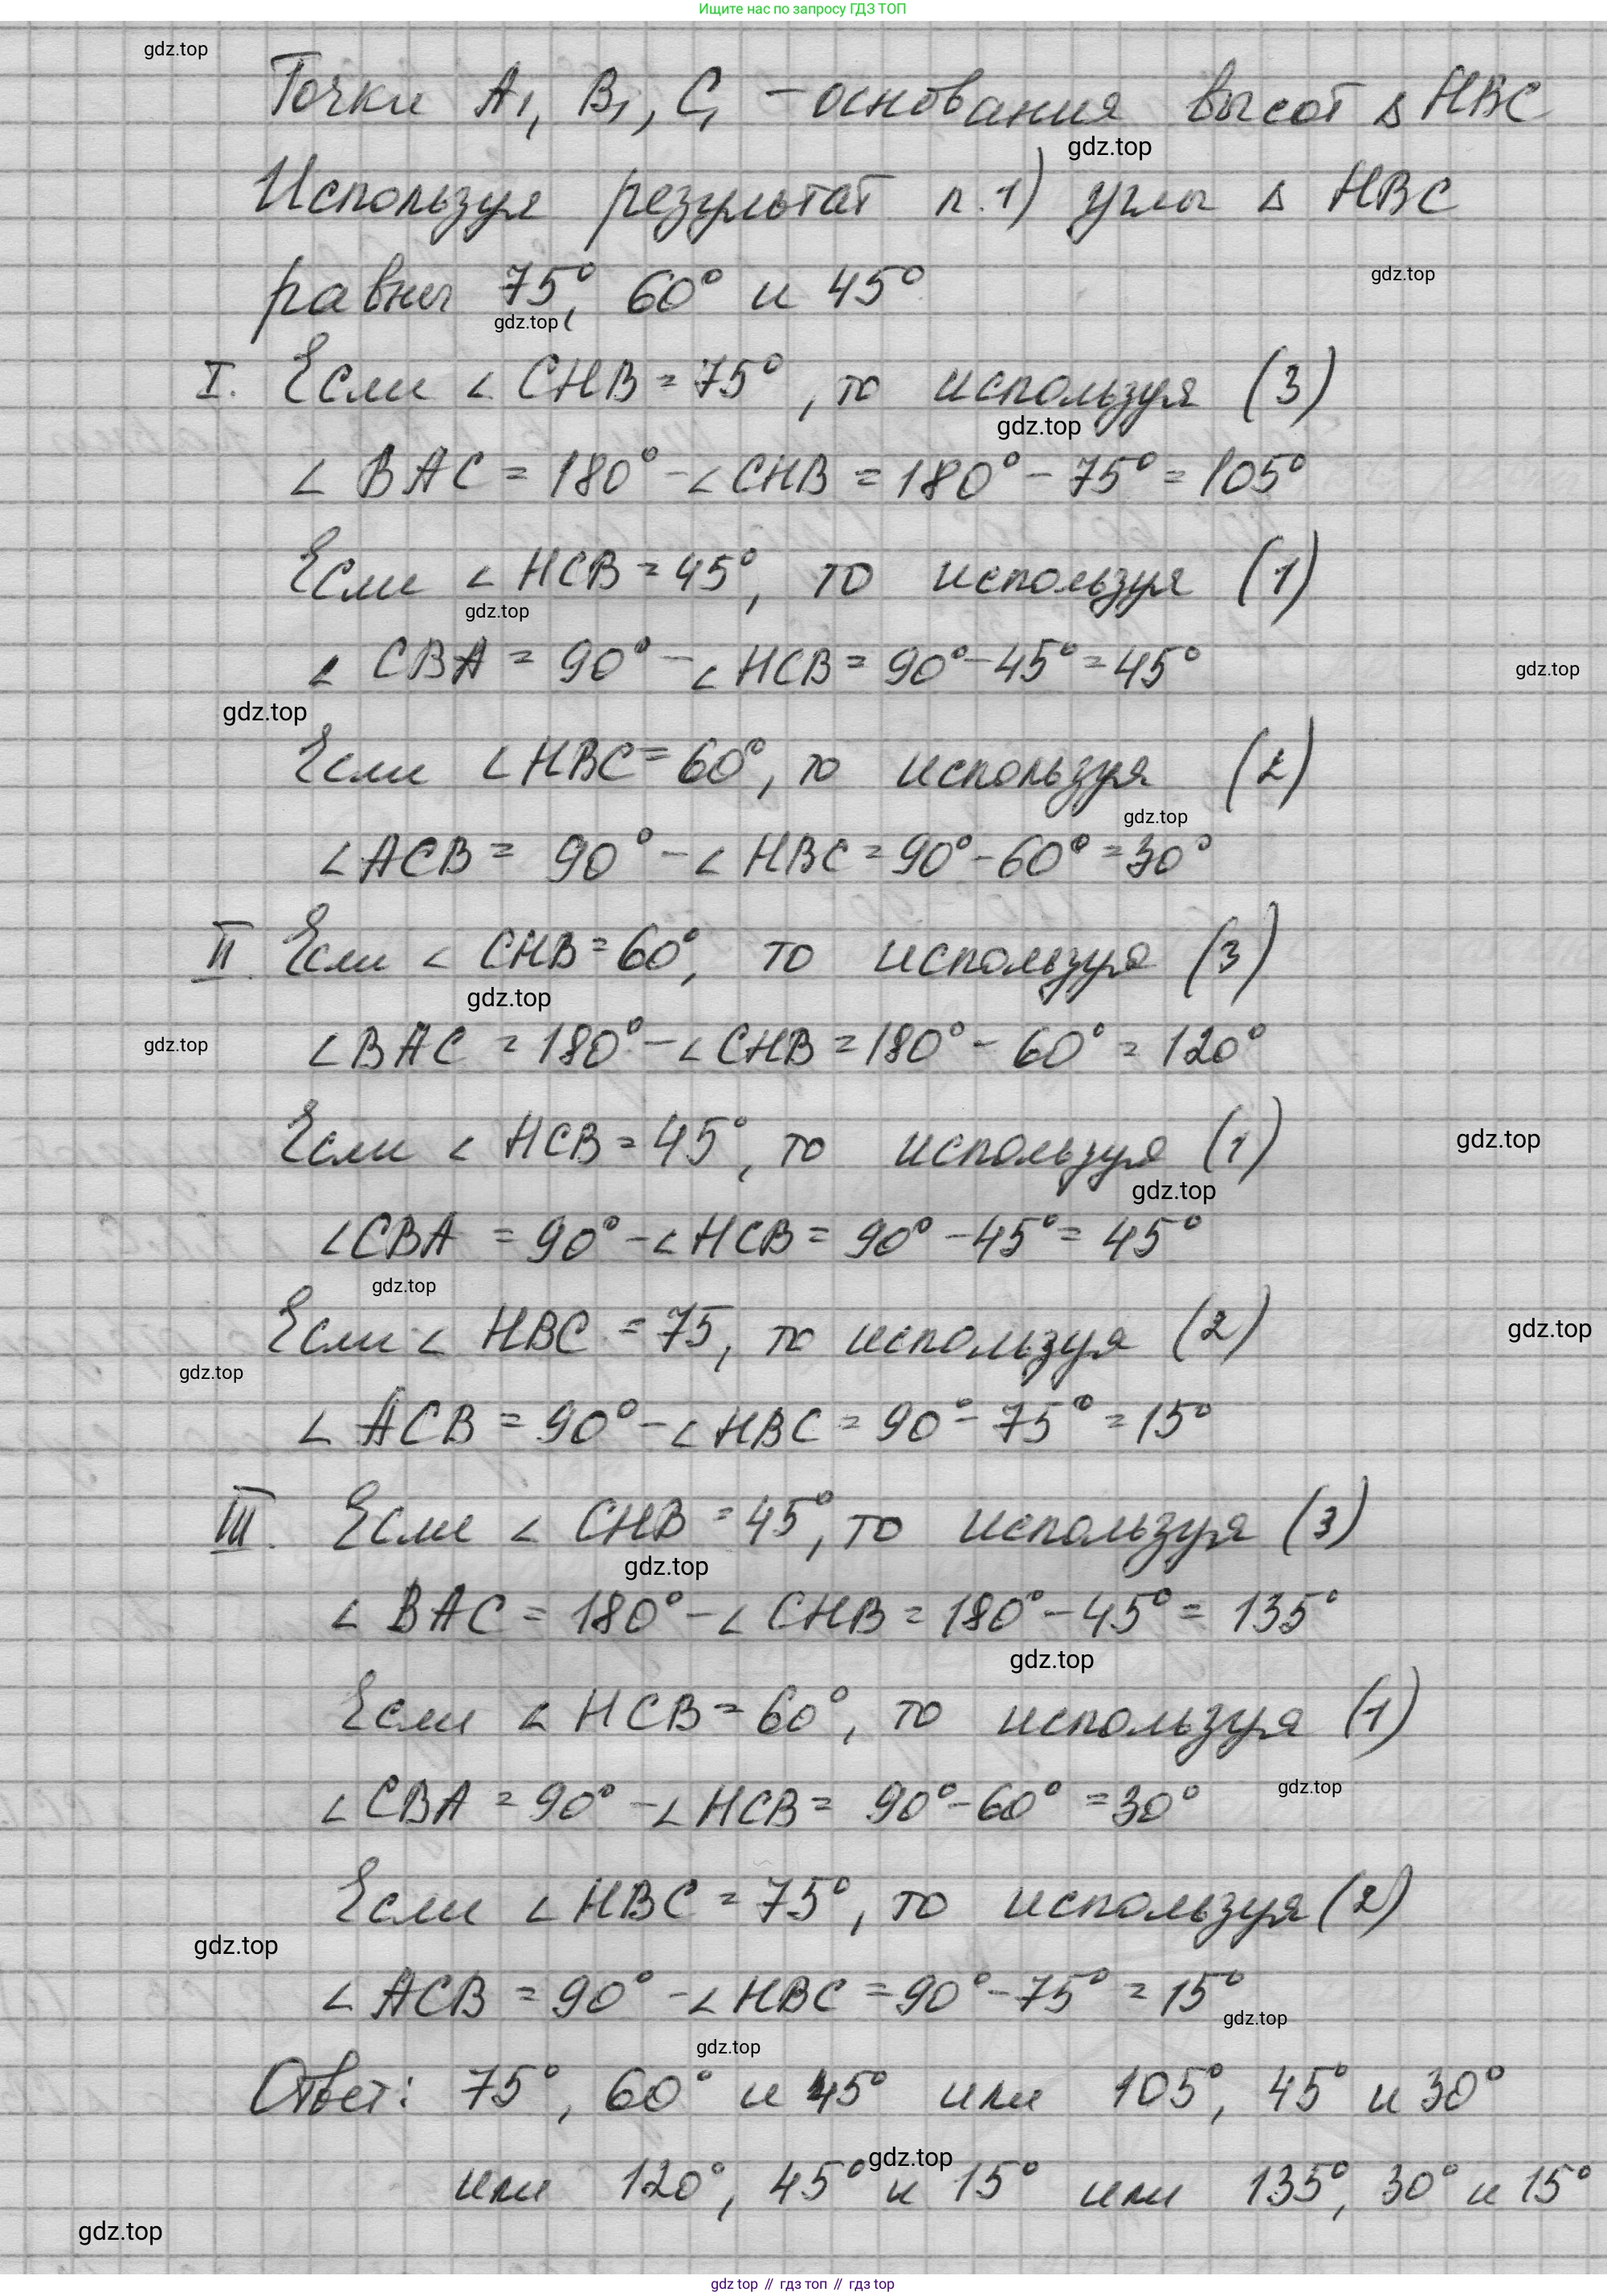 Ищите нас по запросу ГДЗ ТОП
gdz.top
Точки A₁, B₁, C₁ – основания высот ▵ HBC
gdz.top
Используя результат п.1) углы ▵ HBC
gdz.top
равны 75°, 60° и 45°
gdz.top
I. Если ∠ CHB = 75°, то используя (3)
gdz.top
∠ BAC = 180° - ∠ CHB = 180° - 75° = 105°
Если ∠ HCB = 45°, то используя (1)
gdz.top
∠ CBA = 90° - ∠ HCB = 90° - 45° = 45°
gdz.top
gdz.top
Если ∠ HBC = 60°, то используя (2)
gdz.top
∠ ACB = 90° - ∠ HBC = 90° - 60° = 30°
II. Если ∠ CHB = 60°, то используя (3)
gdz.top
gdz.top
∠ BAC = 180° - ∠ CHB = 180° - 60° = 120°
Если ∠ HCB = 45°, то используя (1)
gdz.top
gdz.top
∠ CBA = 90° - ∠ HCB = 90° - 45° = 45°
gdz.top
Если ∠ HBC = 75, то используя (2)
gdz.top
gdz.top
∠ ACB = 90° - ∠ HBC = 90° - 75° = 15°
III. Если ∠ CHB = 45°, то используя (3)
gdz.top
∠ BAC = 180° - ∠ CHB = 180° - 45° = 135°
gdz.top
Если ∠ HCB = 60°, то используя (1)
gdz.top
∠ CBA = 90° - ∠ HCB = 90° - 60° = 30°
Если ∠ HBC = 75°, то используя (2)
gdz.top
∠ ACB = 90° - ∠ HBC = 90° - 75° = 15°
gdz.top
gdz.top
Ответ: 75°, 60° и 45° или 105°, 45° и 30°
gdz.top
или 120°, 45° и 15° или 135°, 30° и 15°
gdz.top
gdz top // гдз топ // гдз top